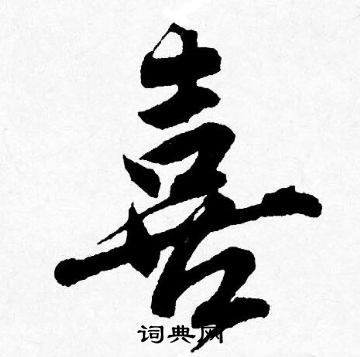 喜
词典网